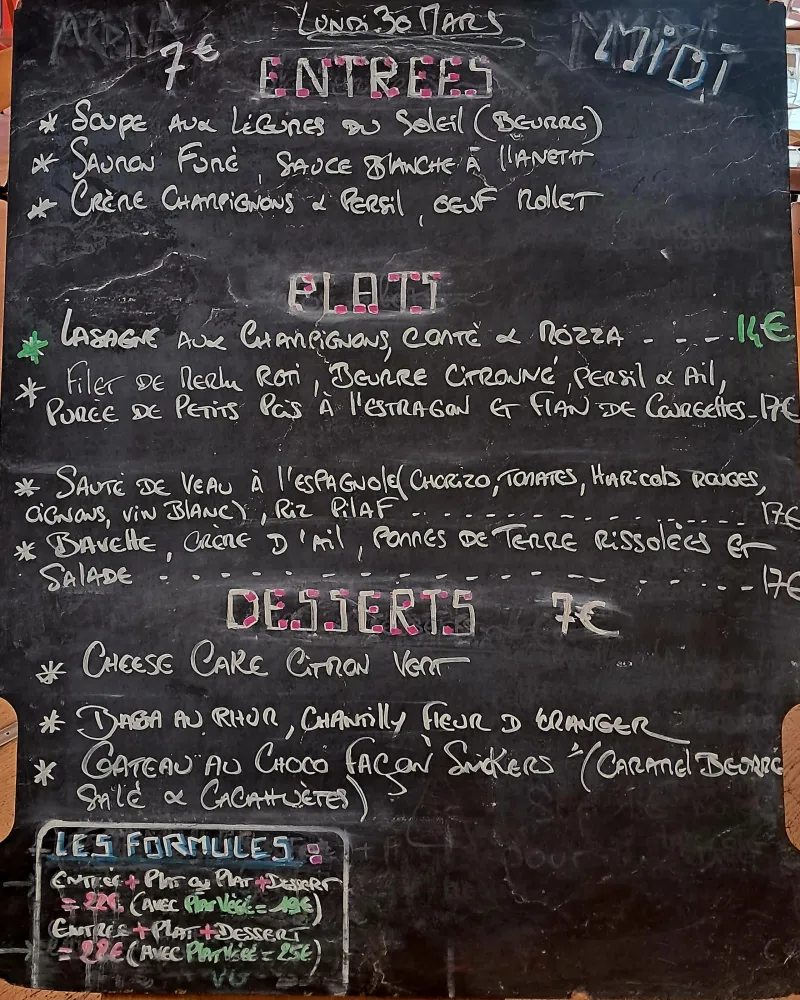 LUNDI 30 MARS
MIDI
7€
ENTREES
* SOUPE AUX LÉGUMES DU SOLEIL (BEURRE)
* SAUMON FUMÉ, SAUCE BLANCHE À L'ANETH
* CRÈME CHAMPIGNONS & PERSIL, OEUF MOLLET
PLATS
* LASAGNE AUX CHAMPIGNONS, COMTÉ & MOZZA - - - - 14€
* FILET DE MERLU ROTI, BEURRE CITRONNÉ, PERSIL & AIL,
PURÉE DE PETITS POIS À L'ESTRAGON ET FLAN DE COURGETTES - 17€
* SAUTÉ DE VEAU À L'ESPAGNOLE (CHORIZO, TOMATES, HARICOTS ROUGES,
OIGNONS, VIN BLANC), RIZ PILAF - - - - - - - - - - - - - 17€
* BAVETTE, CRÈME D'AIL, POMMES DE TERRE RISSOLÉES ET
SALADE - - - - - - - - - - - - - - - - - 17€
DESSERTS 7€
* CHEESE CAKE CITRON VERT
* BABA AU RHUM, CHANTILLY FLEUR D'ORANGER
* GATEAU AU CHOCO FAÇON "SNICKERS" (CARAMEL BEURRE
SALÉ & CACAHUÈTES)
LES FORMULES :
ENTRÉE + PLAT OU PLAT + DESSERT
= 22€ (AVEC PLAT VÉGÉ = 19€)
ENTRÉE + PLAT + DESSERT
= 28€ (AVEC PLAT VÉGÉ = 25€)